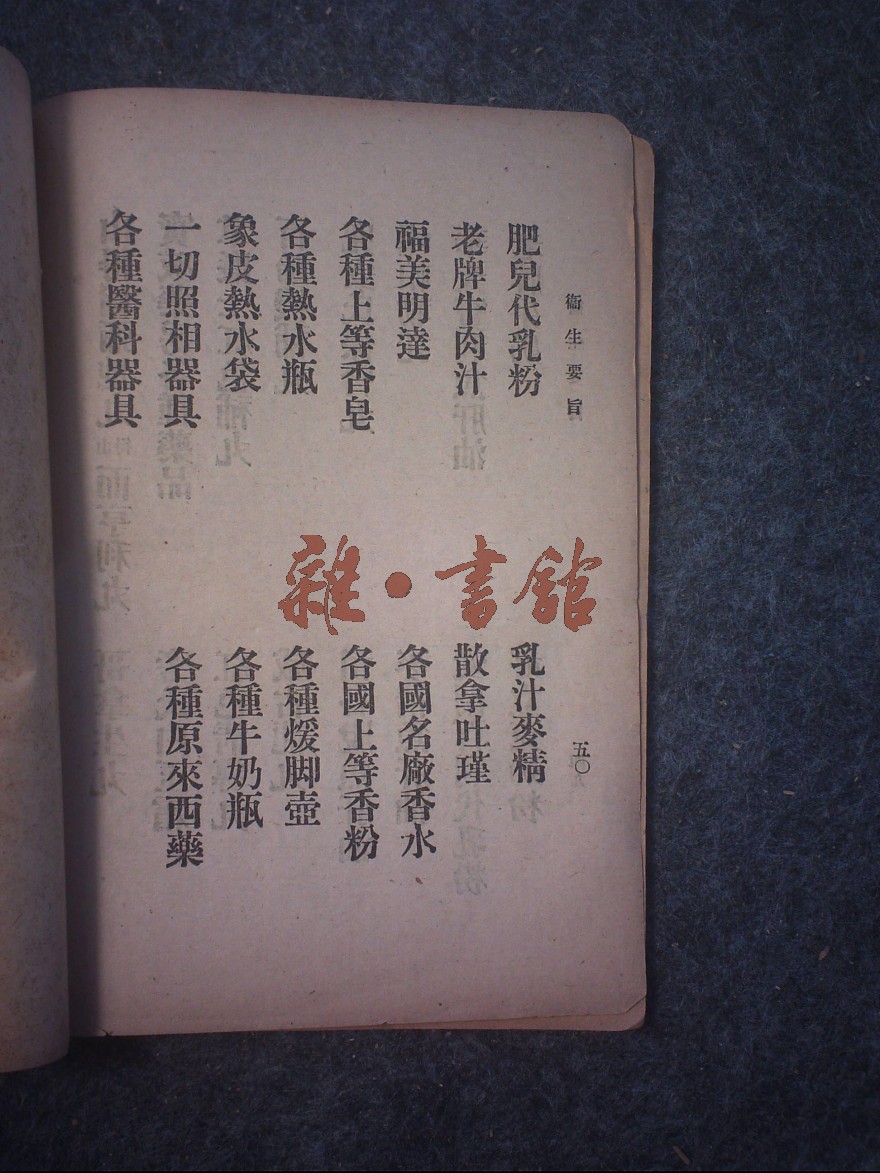 衞生要旨
五〇
肥兒代乳粉
乳汁麥精
老牌牛肉汁
散拿吐瑾
福美明達
各國名廠香水
各種上等香皂
各國上等香粉
各種熱水瓶
各種煖脚壺
象皮熱水袋
各種牛奶瓶
一切照相器具
各種原來西藥
各種醫科器具
雜·書館